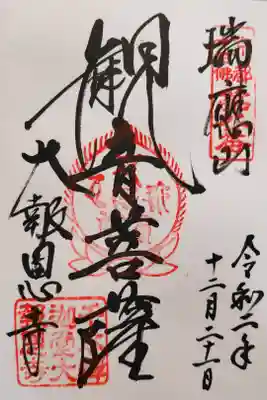 瑞應山
令和二年
十二月二十一日
觀音菩薩
大報恩寺